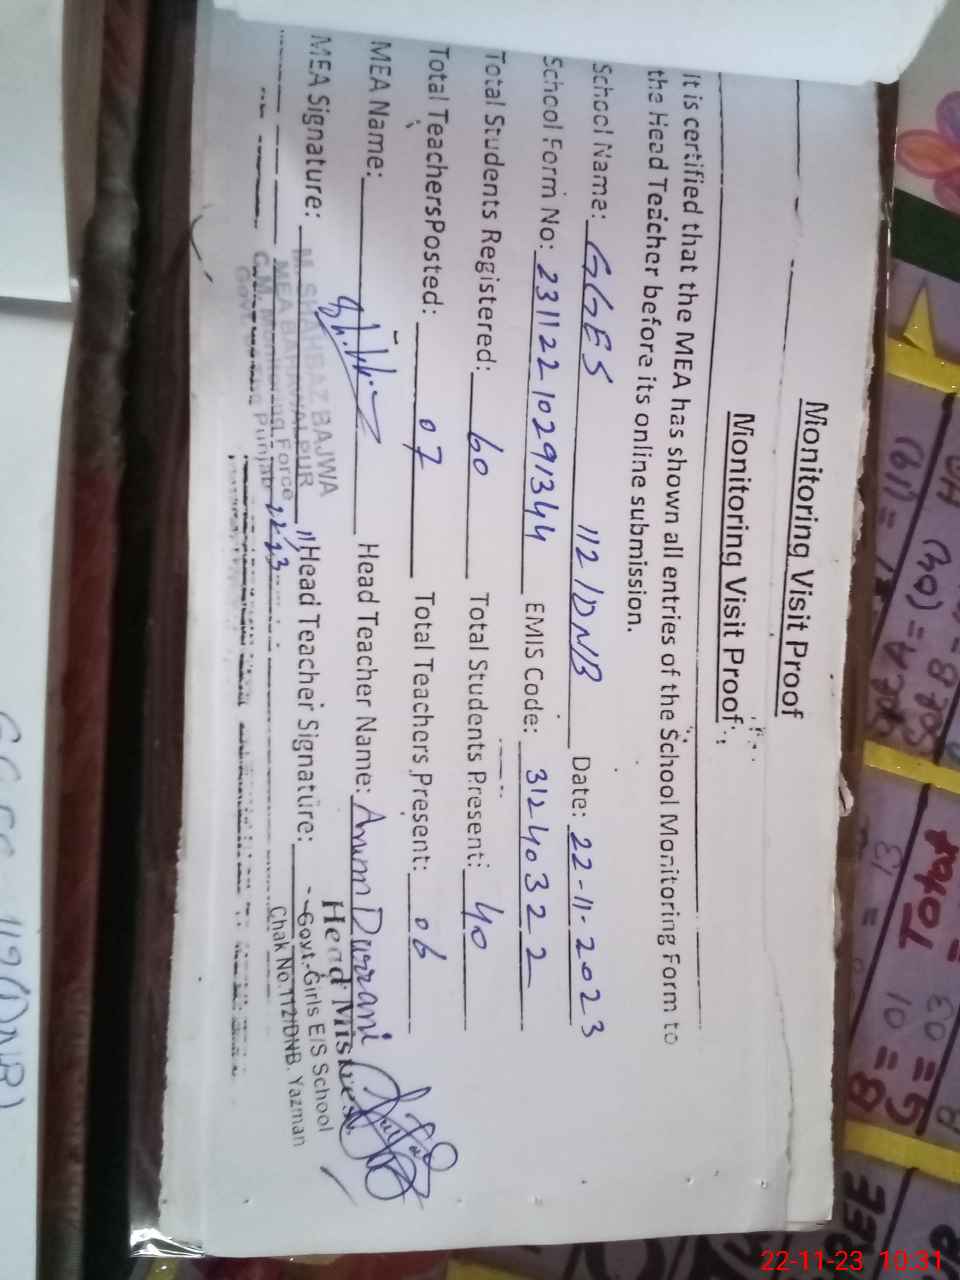 Monitoring Visit Proof
Monitoring Visit Proof
It is certified that the MEA has shown all entries of the School Monitoring Form to
the Head Teacher before its online submission.
School Name: GGES 112/DNB Date: 22-11-2023
School Form No: 23112210291344 EMIS Code: 31240322
Total Students Registered: 60 Total Students Present: 40
Total TeachersPosted: 07 Total Teachers Present: 06
MEA Name: Head Teacher Name: Amnn Durrani
MEA Signature: Head Teacher Signature:
M. SHAHBAZ BAJWA
MEA BAHAWALPUR
C.M. Monitoring Force
Govt. of the Punjab
Head Mistress
Govt. Girls E/S School
Chak No.112/DNB. Yazman
= (19)
Set A = (03)
Set B =
= 13
Total
B = 01
G = 03
22-11-23 10:31